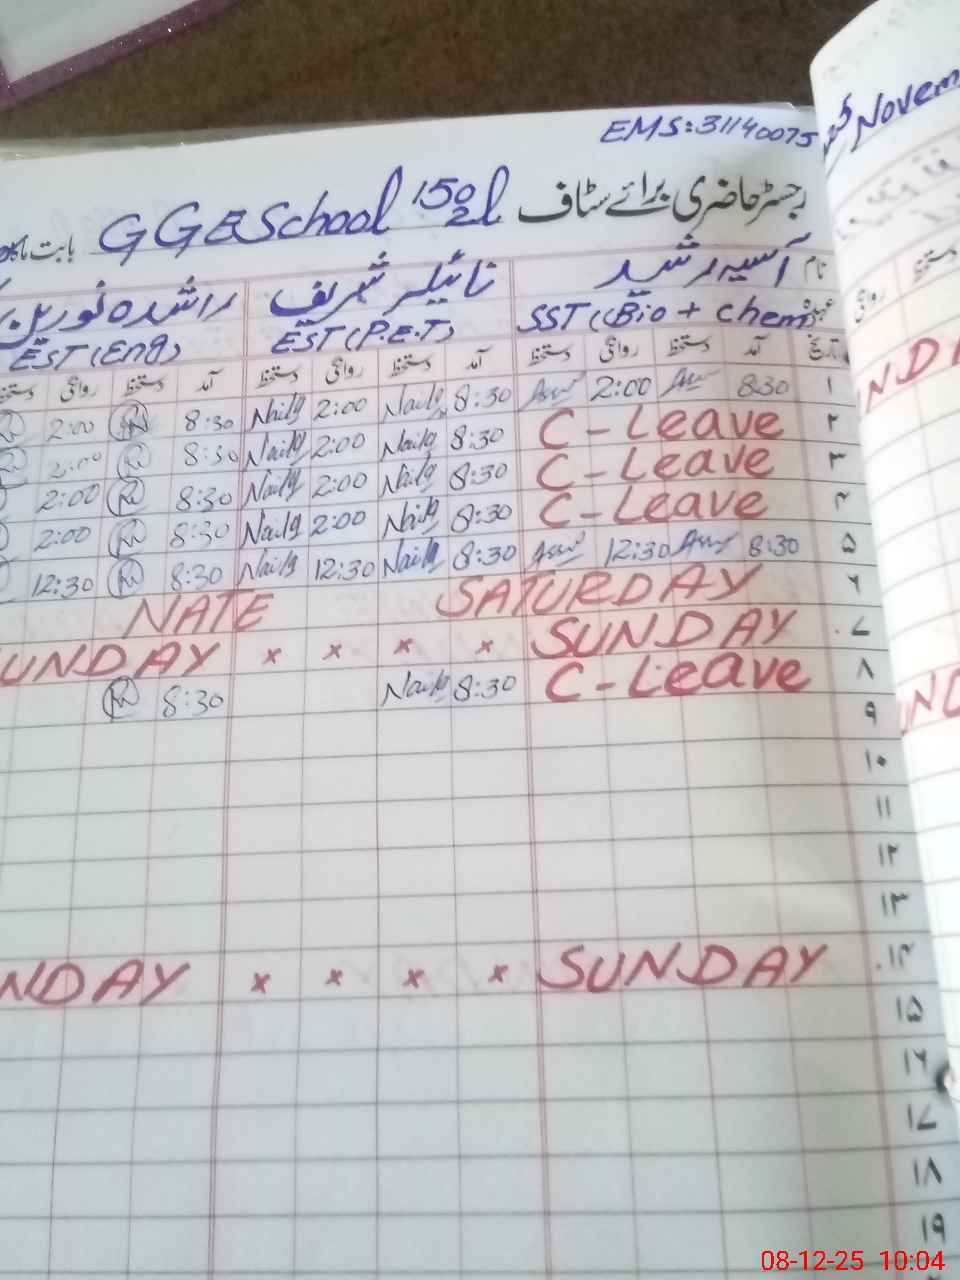 EMS: 31140075
رجسٹر حاضری برائے سٹاف GGESchool 150/2l بابت ماہ
نام آسیہ رشید نائیلہ شریف راشدہ نورین
SST (Bio + chem) EST (P.E.T) EST (Eng)
تاریخ آمد دستخط روانگی دستخط آمد دستخط روانگی دستخط آمد دستخط روانگی دستخط
۱ 8:30 2:00 8:30 Naila 2:00 Naila 8:30 2:00
۲ C-Leave 8:30 Naila 2:00 Naila 8:30 2:00
۳ C-Leave 8:30 Naila 2:00 Naila 8:30 2:00
۴ C-Leave 8:30 Naila 2:00 Naila 8:30 2:00
۵ 8:30 12:30 8:30 Naila 12:30 Naila 8:30 12:30
۶ NATE SATURDAY
۷ SUNDAY × × × × SUNDAY
۸ C-Leave 8:30 Naila 8:30
۹
۱۰
۱۱
۱۲
۱۳
۱۴ SUNDAY × × × × NDAY
۱۵
۱۶
۱۷
۱۸
۱۹
Novem
روانگی دستخط
NDA
ND
08-12-25 10:04